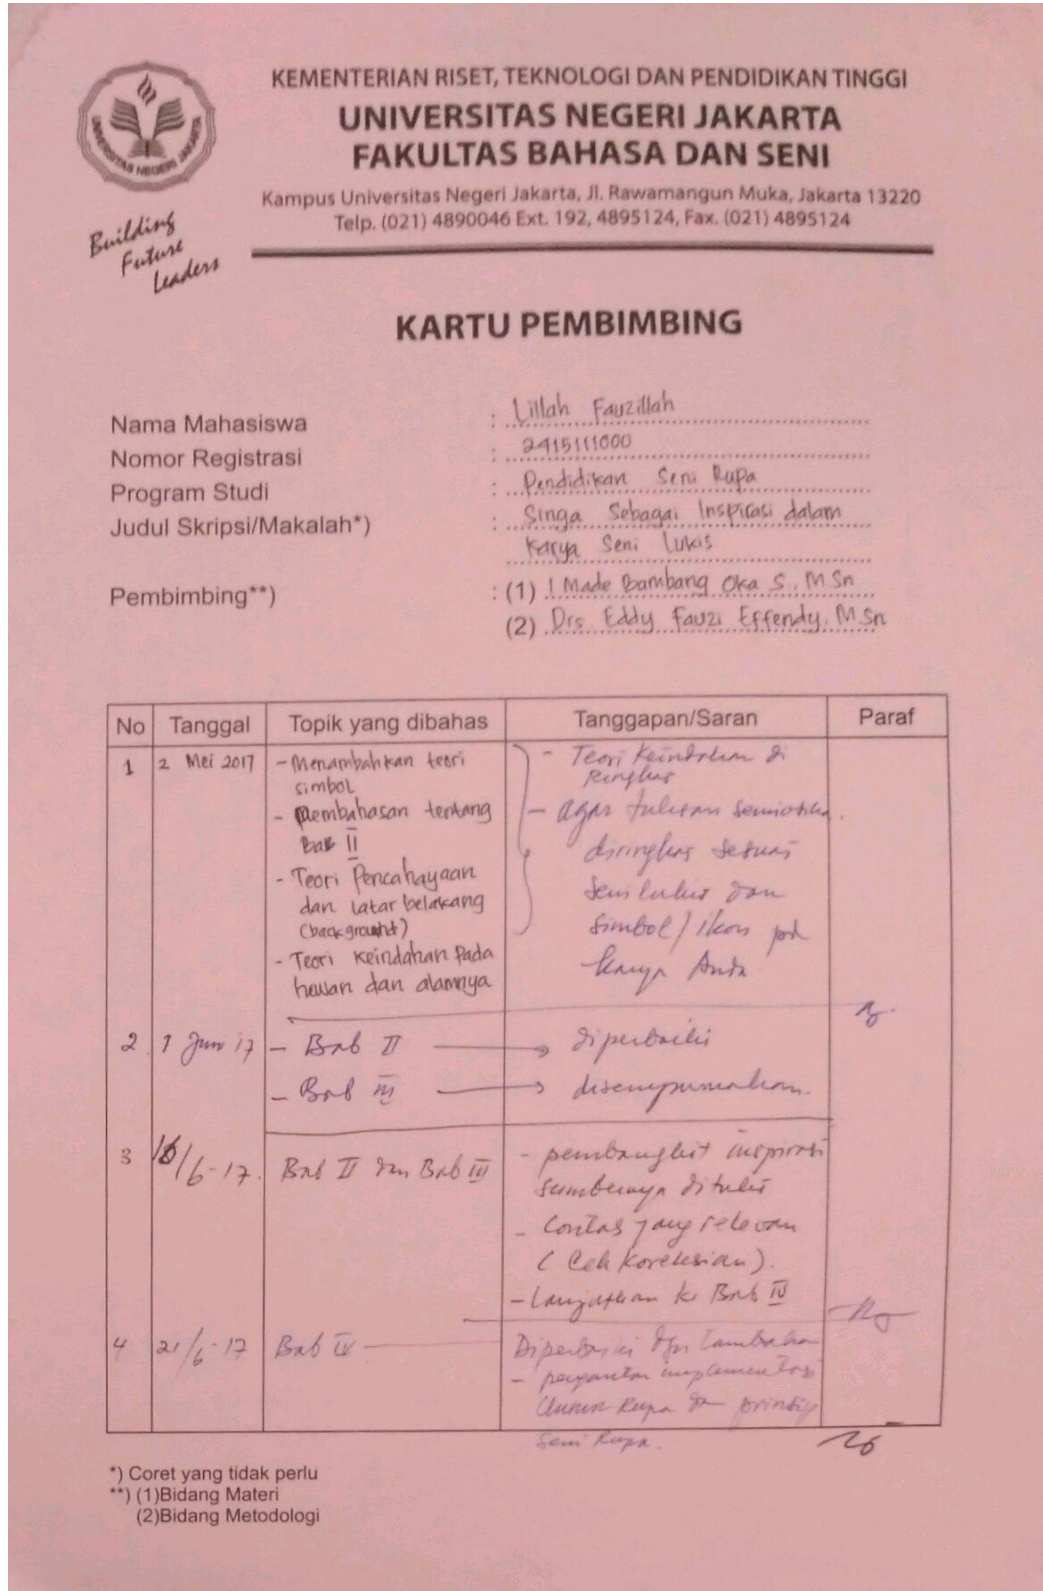 KEMENTERIAN RISET, TEKNOLOGI DAN PENDIDIKAN TINGGI
UNIVERSITAS NEGERI JAKARTA
FAKULTAS BAHASA DAN SENI
Kampus Universitas Negeri Jakarta, Jl. Rawamangun Muka, Jakarta 13220
Telp. (021) 4890046 Ext. 192, 4895124, Fax. (021) 4895124
UNIVERSITAS NEGERI JAKARTA
Building
Future
Leaders
KARTU PEMBIMBING
Nama Mahasiswa : Lillah Fauzillah
Nomor Registrasi : 2415111000
Program Studi : Pendidikan Seni Rupa
Judul Skripsi/Makalah*) : Singa Sebagai Inspirasi dalam
Karya Seni Lukis
Pembimbing**) : (1) I Made Bambang Oka S, M Sn
(2) Drs Eddy Fauzi Effendy, M Sn
No Tanggal Topik yang dibahas Tanggapan/Saran Paraf
1 2 Mei 2017
- Menambahkan teori
simbol
- Pembahasan tentang
Bab II
- Teori Pencahayaan
dan latar belakang
(background)
- Teori Keindahan Pada
hewan dan alamnya
- Teori Keindahan di
Ringkas
- agar tulisan semiotika
diringkas sesuai
seni lukis dan
simbol / ikon pd
karya Anda
2. 1 Juni 17 - Bab II diperbaiki
- Bab III disempurnakan.
3 /6-17. Bab II dan Bab III
- pembangkit inspirasi
sumbernya ditulis
- Contos yang relevan
( Cek Koreksian ).
- Lanjutkan ke Bab IV
4 21/6-17 Bab IV Diperbaiki dgn tambahan
- pengantar implementasi
Unsur Rupa dan prinsip
Seni Rupa.
*) Coret yang tidak perlu
**) (1)Bidang Materi
(2)Bidang Metodologi